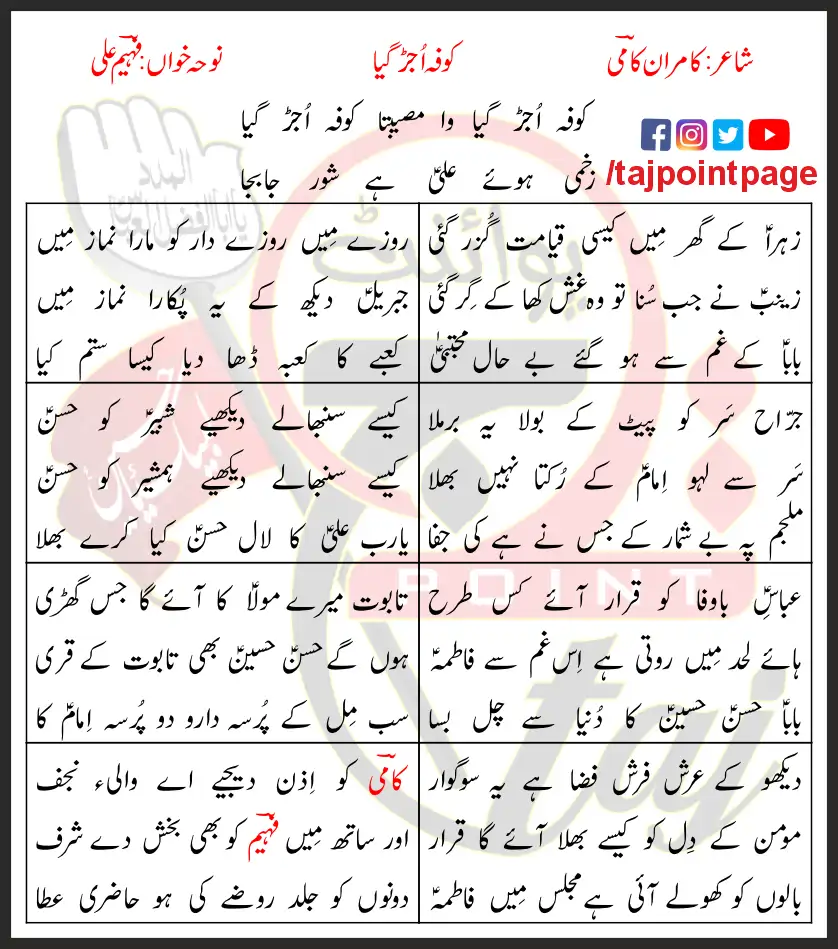 شاعر: کامران کامیؔ
کوفہ اُجڑ گیا
نوحہ خواں: فہیمؔ علی
کوفہ اُجڑ گیا وا مصیبتا کوفہ اُجڑ گیا
زخمی ہوئے علیؑ ہے شور جابجا
/tajpointpage
زہراؑ کے گھر مِیں کیسی قیامت گُزر گئی
زینبؑ نے جب سُنا تو وہ غش کھا کے گِر گئی
باباؑ کے غم سے ہو گئے بے حال مجتبیٰؑ
روزے مِیں روزے دار کو مارا نماز مِیں
جبریلؑ دیکھ کے یہ پُکارا نماز مِیں
کعبے کا کعبہ ڈھا دیا کیسا ستم کیا
جرّاح سَر کو پیٹ کے بولا یہ برملا
سَر سے لہو اِمامؑ کے رُکتا نہیں بھلا
ملجم پہ بے شمار کے جس نے ہے کی جفا
کیسے سنبھالے دیکھیے شبیرؑ کو حسنؑ
کیسے سنبھالے دیکھیے ہمشیر کو حسنؑ
یارب علیؑ کا لال حسنؑ کیا کرے بھلا
عباسِؑ باوفا کو قرار آئے کس طرح
ہائے لحد مِیں روتی ہے اِس غم سے فاطمہؑ
باباؑ حسنؑ حسینؑ کا دُنیا سے چل بسا
تابوت میرے مولاؑ کا آئے گا جس گھڑی
ہوں گے حسنؑ حسینؑ بھی تابوت کے قری
سب مِل کے پُرسہ دارو دو پُرسہ اِمامؑ کا
دیکھو کے عرش فرش فضا ہے یہ سوگوار
مومن کے دِل کو کیسے بھلا آئے گا قرار
بالوں کو کھولے آئی ہے مجلس مِیں فاطمہؑ
کامیؔ کو اِذن دیجیے اے والیء نجف
اور ساتھ مِیں فہیمؔ کو بھی بخش دے شرف
دونوں کو جلد روضے کی ہو حاضری عطا